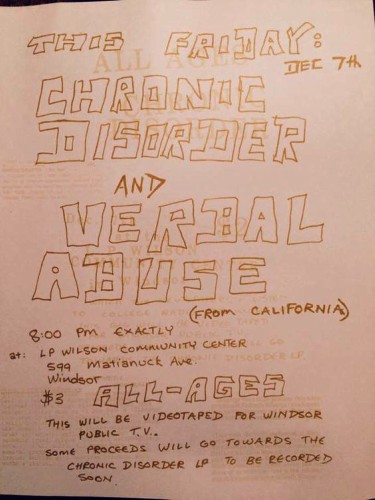 THIS FRIDAY:
DEC 7th
CHRONIC
DISORDER
AND
VERBAL
ABUSE
(FROM CALIFORNIA)
8:00 PM EXACTLY
at: LP WILSON COMMUNITY CENTER
599 Matianuck Ave.
Windsor
$3 ALL-AGES
THIS WILL BE VIDEOTAPED FOR WINDSOR
PUBLIC T.V..
SOME PROCEEDS WILL GO TOWARDS THE
CHRONIC DISORDER LP TO BE RECORDED
SOON.